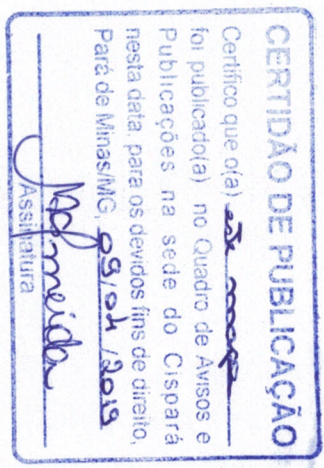 CERTIDÃO DE PUBLICAÇÃO
Certifico que o(a) este
foi publicado(a) no Quadro de Avisos e
Publicações na sede do Cispará
nesta data, para os devidos fins de direito,
Pará de Minas/MG, 09/04/2019
MAlmeida
Assinatura